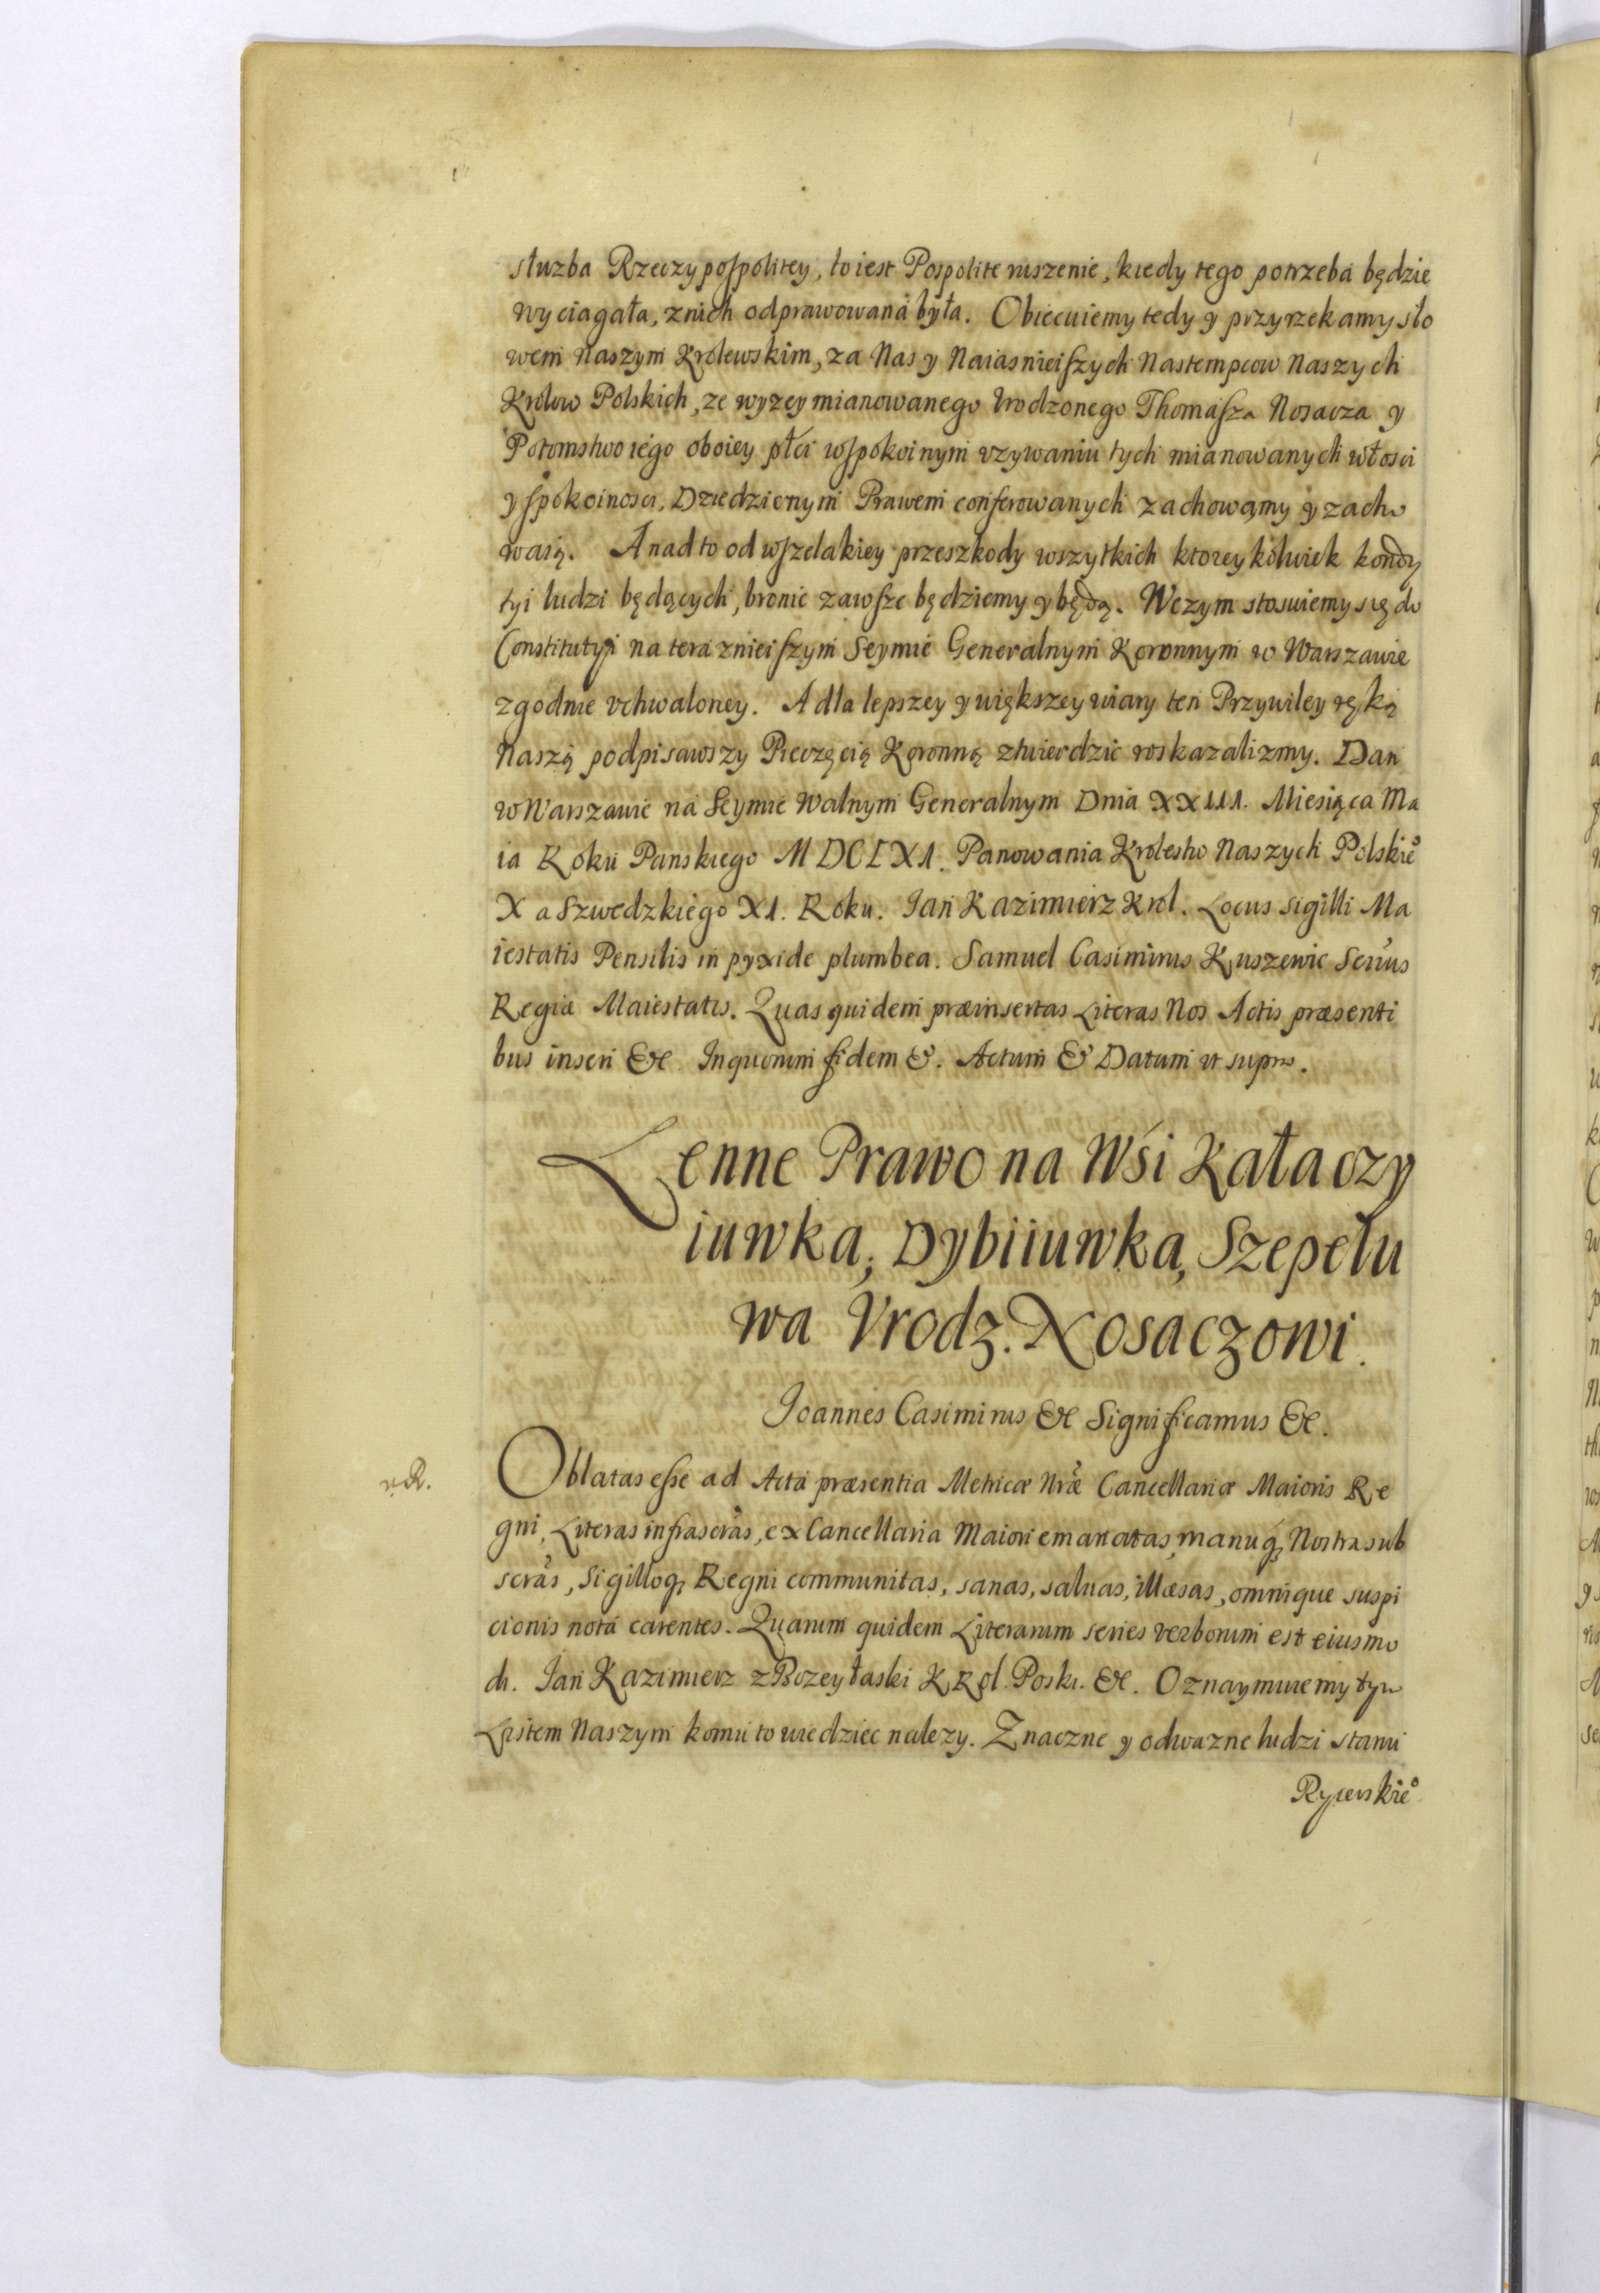 słuzba Rzeczypospolitey, to iest Pospolite ruszenie, kiedy tego potrzeba będzie
wyciagała, znich odprawowana była. Obiecuiemy tedy y przyrzekamy sło
wem naszym Krolewskim, za Nas y Naiasnieiszych Nastempcow Naszych
Krolow Polskich, ze wyzey mianowanego Vrodzonego Thomasza Nosacza y
Potomstwo iego oboiey płci wspokoinym vzywaniu tych mianowanych włosci
y spokoinosci, Dziedzicznym Prawem conferowanych zachowamy y zacho
waią. A nadto od wszelakiey przeszkody wszytkich ktoreykolwiek kondy
tyi ludzi będących, bronic zawsze będziemy y będą. Wczym stosuiemy się do
Constitutyi na teraznieiszym Seymie Generalnym Koronnym w Warszawie
zgodnie vchwaloney. A dla lepszey y większey wiary ten Przywiley ręką
Naszą podpisawszy Pieczęcią Koronną ztwierdzic roskazalizmy. Dan
w Warszawie na Seymie Walnym Generalnym Dnia XXIII. Miesiąca Ma
ia Roku Panskiego MDCLXI. Panowania Krolestw Naszych Polskieº
X a Szwedzkiego XI. Roku. Jan Kazimierz Krol. Locus sigilli Ma
iestatis Pensilis in pyxide plumbea. Samuel Casimirus Kuszewic Secrius
Regiæ Maiestatis. Quas quidem præinsertas Literas Nos Actis præsenti
bus inseri &c. In quorum fidem &. Actum & Datum vt supra.
Lenne Prawo na Wśi Kałaczy
iuwka, Dybiiuwka, Szepelu
wa Vrodz. Nosaczowi.
Joannes Casimirus &c Significamus &c.
n. R.
Oblatas esse ad Acta præsentia Metricæ Nræ Cancellariæ Maioris Re
gni, Literas infrascras, ex Cancellaria Maiori emanatas, manuq; Nostra sub
scras, Sigilloq; Regni communitas, sanas, saluas, illæsas, omnique suspi
cionis nota carentes. Quarum quidem Literarum series verborum est eiusmo
di. Jan Kazimierz z Bozey łaski KRol. Poski. &c. Oznaymuiemy tym
Listem Naszym komu to wiedziec nalezy. Znaczne y odwazne ludzi stanu
Rycerskieº